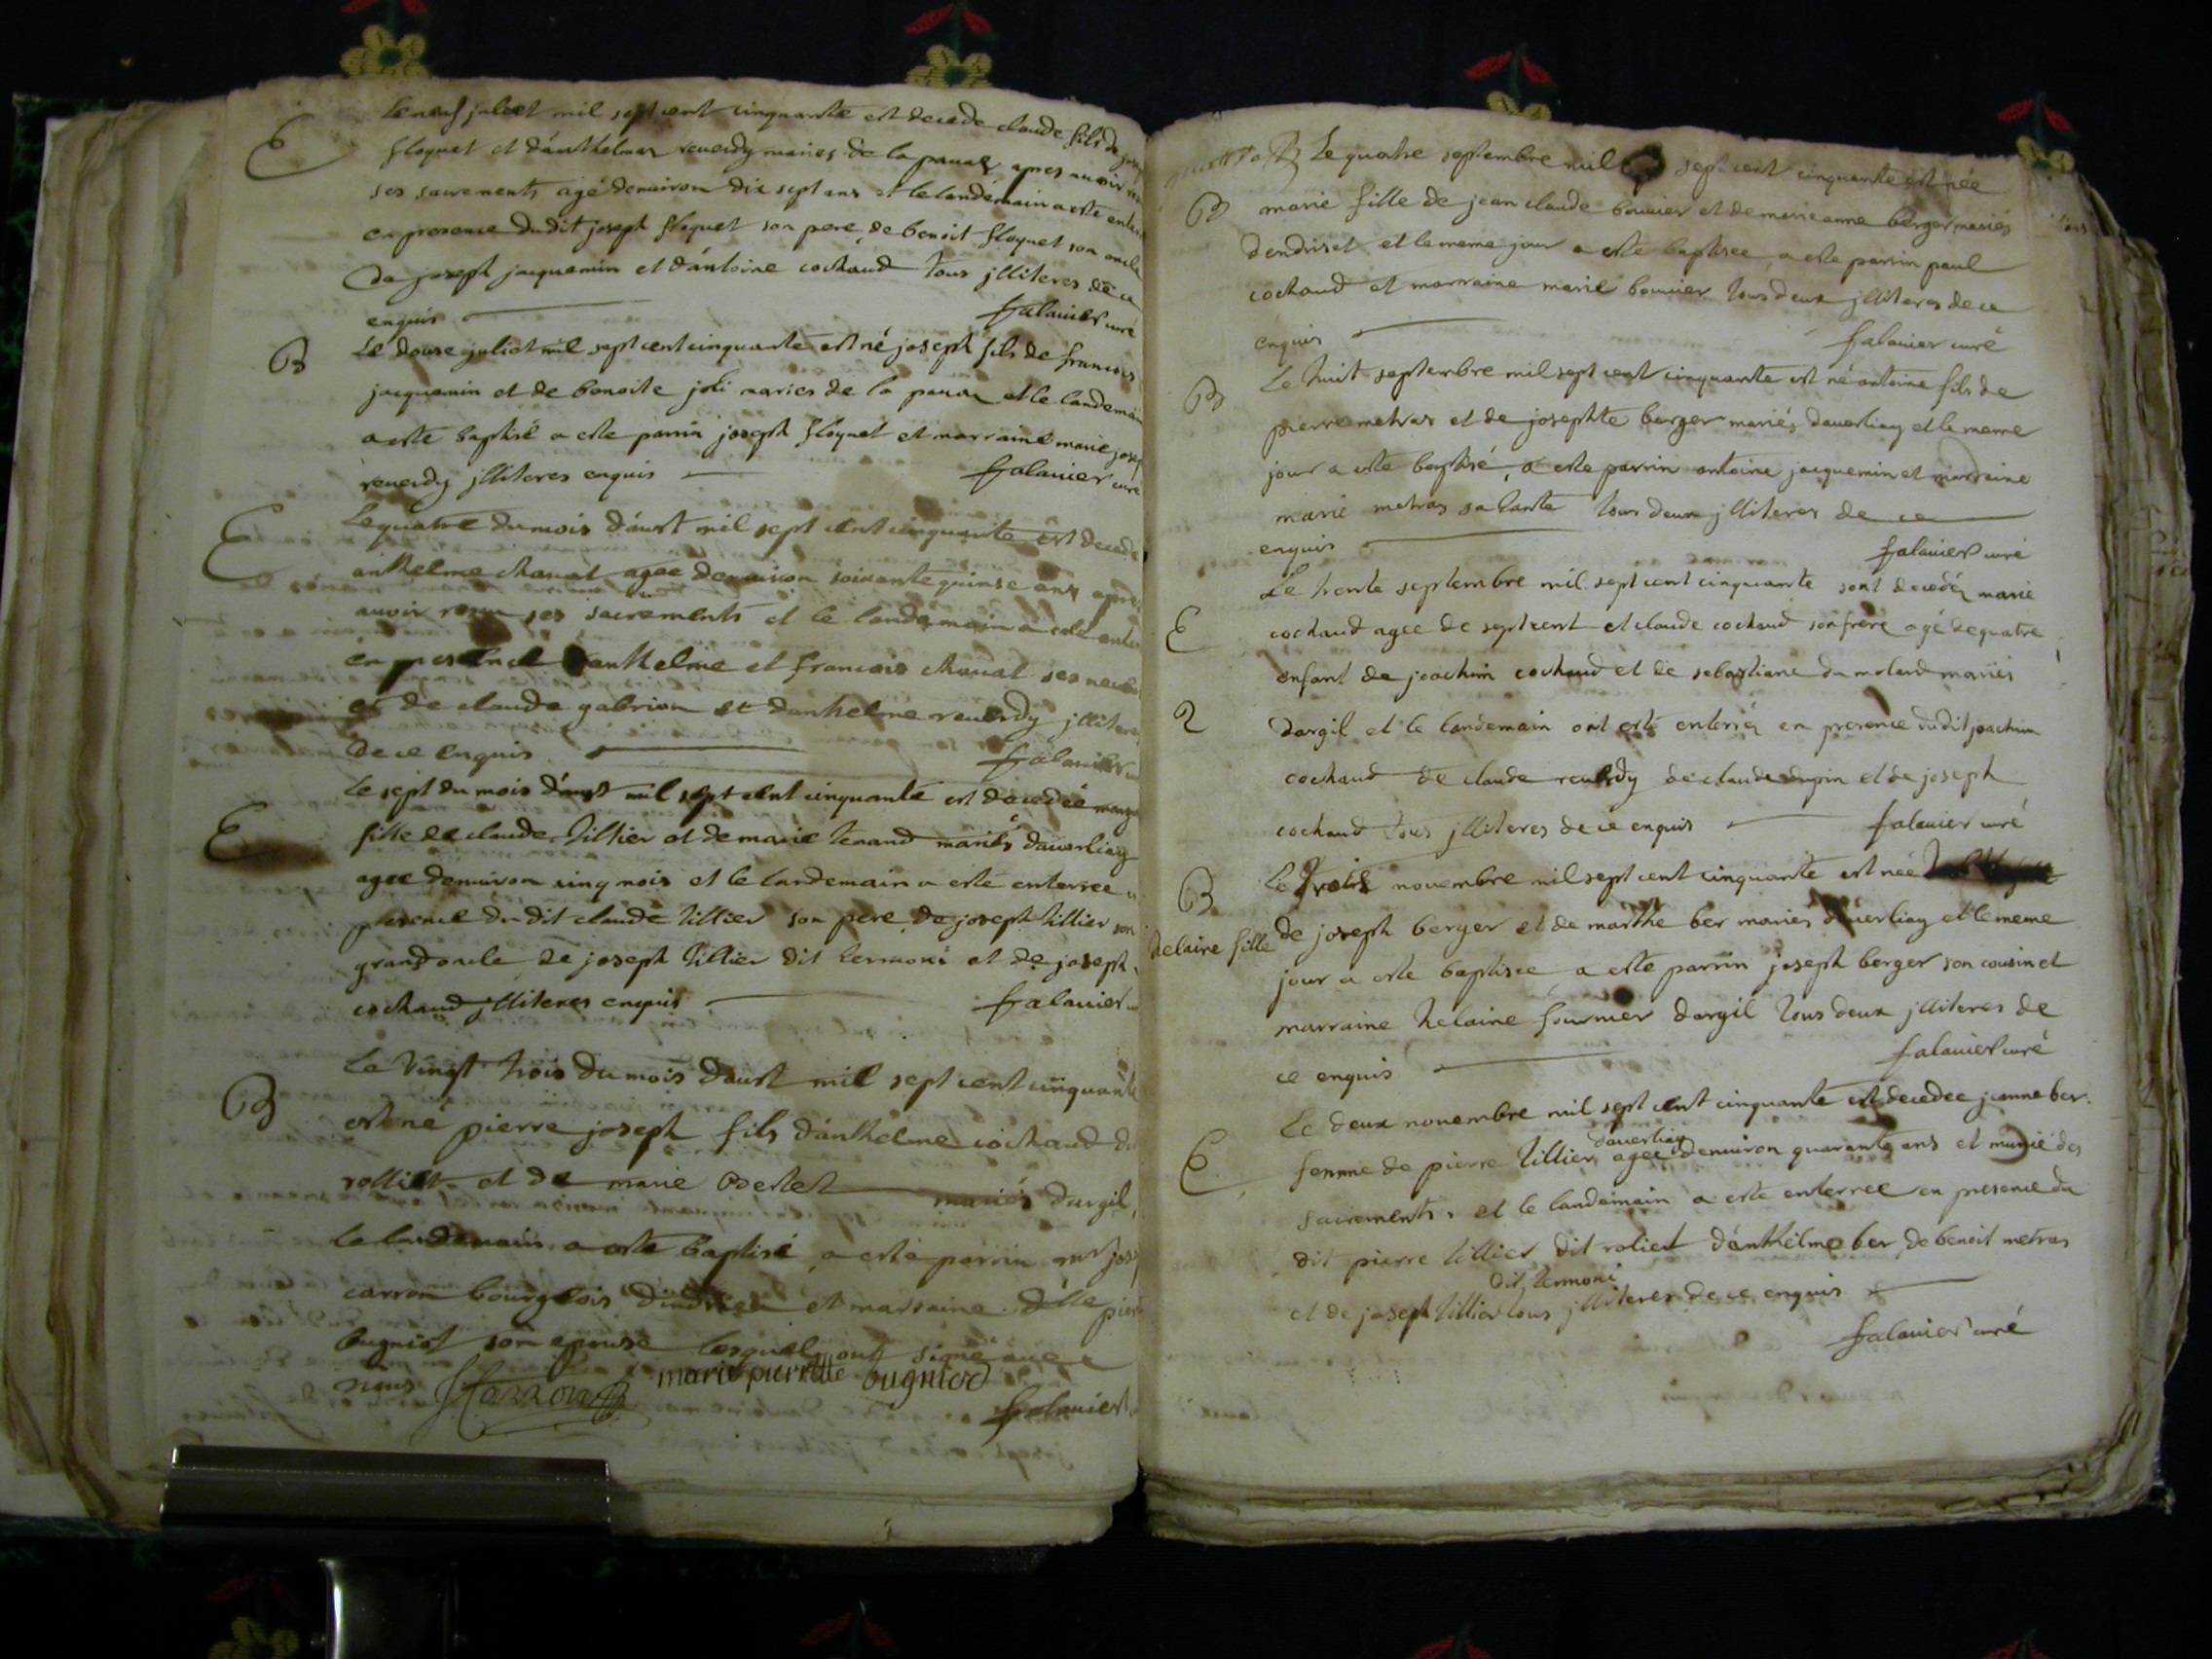 E
Le neuf juliet mil sept cent cinquante est decede claude fils de jose
floquet et d'anthelmaz reuerdy maries de la pauaz apres auoir
ses sacrements agé denuiron dix sept ans et le landemain a esté enter
en presence dudit joseph floquet son pere, de benoit floquet son oncle
de joseph jacquemin et d'antoine cochaud tous jlliteres de ce
enquis falauier curé
B
Le douse juliet mil sept cent cinquante est né joseph fils de francois
jacquemin et de benoite joli maries de la pauaz et le landemain
a esté baptisé a esté parrin joseph floquet et marraine marie josep
reuerdy jlliteres enquis falauier curé
E
Le quatre du mois d'aust mil sept cent cinquante est decedé
anthelme chaual agée denuiron soixante quinse ans apres
auoir ses sacrements et le landemain a esté enter
en presence d'anthelme et francois chaual ses
et de claude gabrion et danthelme reuerdy jllitere
de ce enquis falauier
E
Le sept du mois d'aust mil sept cent cinquante est decedée
fille de claude tillier et de marie tenand mariés dauerliaz
agee denuiron cinq mois et le landemain a esté enterree
presence du dit claude tillier son pere, de joseph tillier son
grand oncle de joseph tillier dit lermoni et de joseph
cochaud jlliteres enquis falauier
B
Le vingt trois du mois daust mil sept cent cinquante
est né pierre joseph fils d'anthelme cochaud d
rolliet et de marie mariés dargil,
le landemain a esté baptisé, a esté parrin jos
carron bourgeois et marraine dlle pier
bugniot son epouse lesquels ont signé auec
nous JCarron marie pierrette bugniod
falauier
B
Le quatre septembre mil sept cent cinquante est née
marie fille de jean claude bouuier et de marie anne berger mariés
dendriset et le meme jour a esté baptisee, a esté parrin paul
cochaud et marraine marie bouuier tous deux jlliteres de ce
enquis falauier curé
B
Le huit septembre mil sept cent cinquante est né antoine fils de
pierre metras et de josephte berger mariés dauerliaz et le meme
jour a esté baptisé, a esté parrin antoine jacquemin et marraine
marie metras sa tante tous deux jlliteres de ce
enquis falauier curé
E
2
Le trente septembre mil sept cent cinquante sont decedés marie
cochaud agee de sept et claude cochaud son frere agé de quatre
enfant de joachim cochaud et de sebastiane du molard mariés
dargil et le landemain ont esté enterrés en presence du dit joachim
cochaud de claude reuerdy de claude dupin et de joseph
cochaud tous jlliteres de ce enquis falauier curé
B
Le trois novembre mil sept cent cinquante est née
helaine fille de joseph berger et de marthe ber maries dauerliaz et le meme
jour a esté baptisee, a esté parrin joseph berger son cousin et
marraine helaine fournier dargil tous deux jlliteres de
ce enquis falauier curé
E
Le deux nouembre mil sept cent cinquante est decedee jeanne ber
femme de pierre tillier dauerliaz agee denuiron quarante ans et munie des
sacrements, et le landemain a esté enterree en presence du
dit pierre tillier dit roliet d'anthelme ber, de benoit metras
et de joseph tillier dit lermoni tous jlliteres de ce enquis
falauier curé